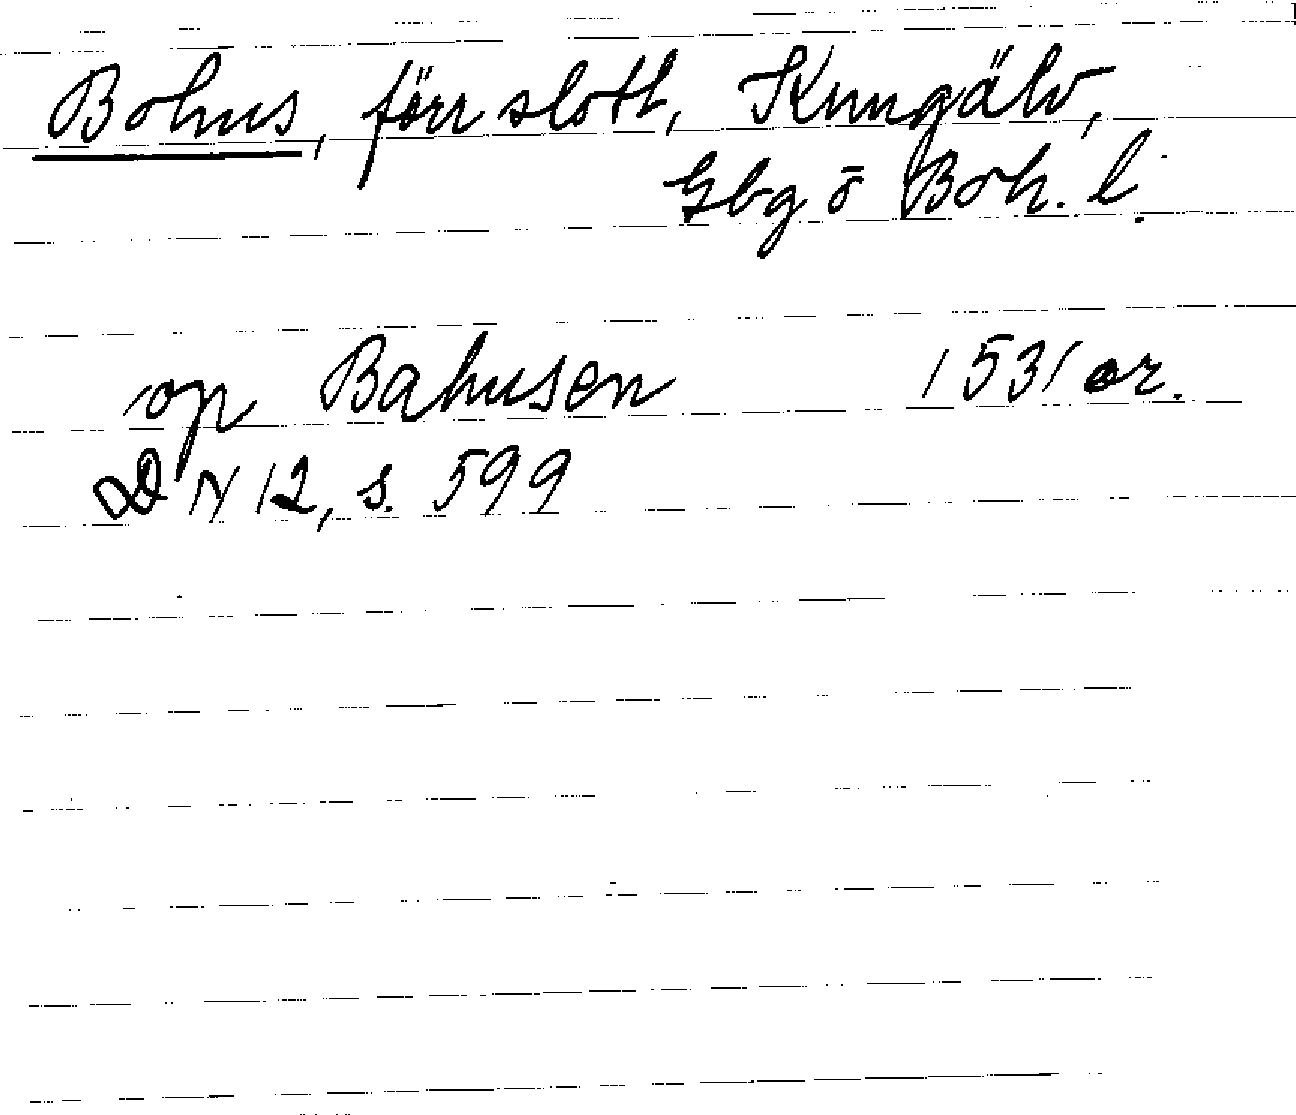 Bohus, förr slott, Kungälv,
Gbg o Boh. l.
op Bahusen 1531 or.
DN 12, s. 599